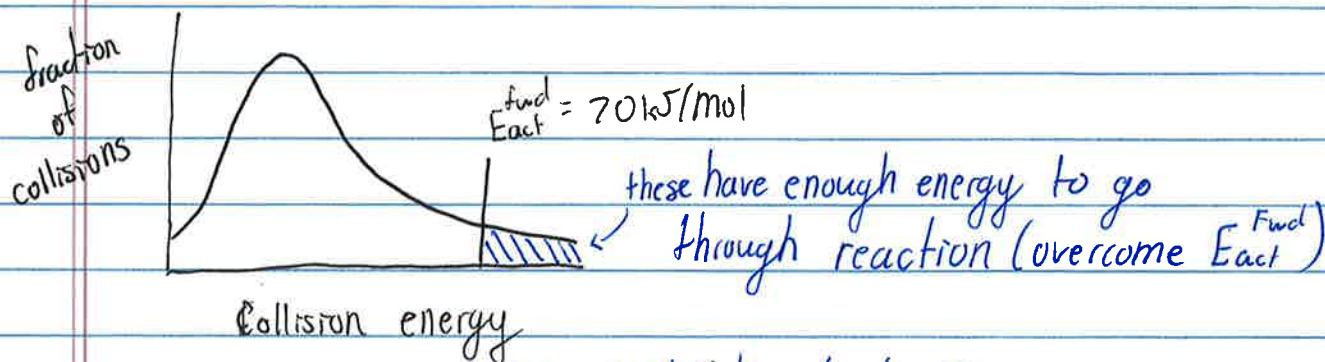 fraction
of
collisions
E_act^fwd = 70 kJ/mol
these have enough energy to go
through reaction (overcome E_act^Fwd)
Collision energy